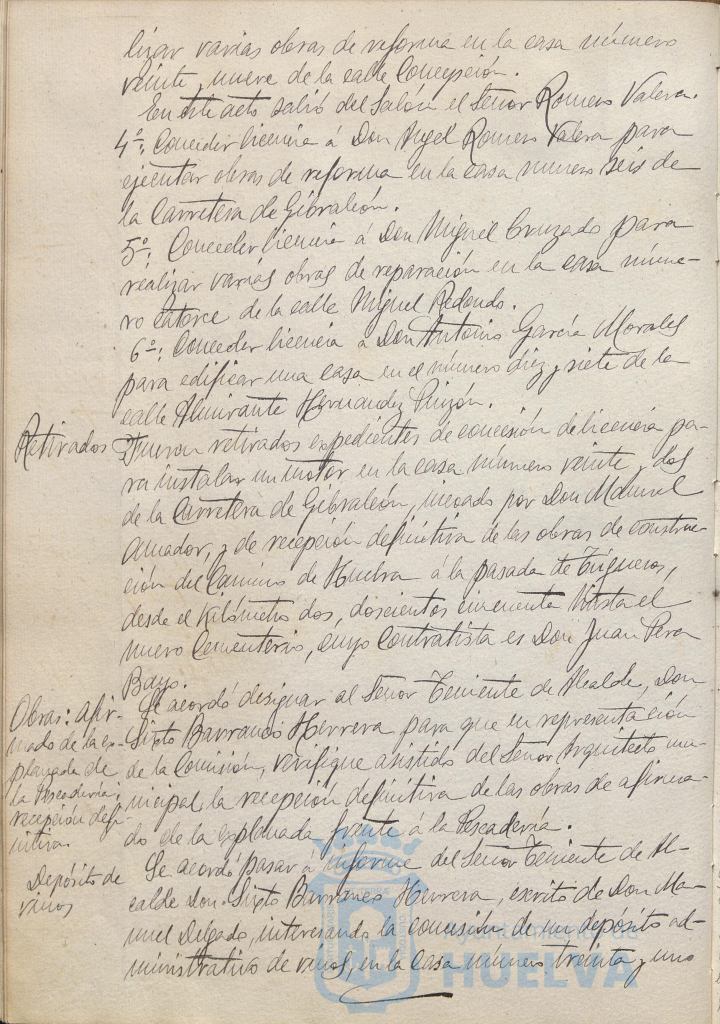 lizar varias obras de reforma en la casa número
veinte y nueve de la calle Concepción.
En este acto salió del Salón el Señor Romero Valera.
4º: Conceder licencia á Don Angel Romero Valera para
ejecutar obras de reforma en la casa número seis de
la Carretera de Gibraleón.
5º: Conceder licencia á Don Miguel Cruzado para
realizar varias obras de reparación en la casa núme-
ro catorce de la calle Miguel Redondo.
6º: Conceder licencia á Don Antonio García Morales
para edificar una casa en el número diez y siete de la
calle Almirante Hernandez Pinzón.
Retirados
Fueron retirados expedientes de concesión de licencia pa-
ra instalar un motor en la casa número veinte y dos
de la Carretera de Gibraleón, incoado por Don Manuel
Amador, y de recepción definitiva de las obras de construc-
ción del Camino de Huelva á la pasada de Trigueros,
desde el Kilómetro dos, doscientos cincuenta hasta el
nuevo Cementerio, cuyo Contratista es Don Juan Pera
Bayo.
Obras: afir-
mado de la ex-
planada de
la Pescadería,
recepción defi-
nitiva.
Se acordó designar al Señor Teniente de Alcalde, Don
Sixto Barranco Herrera para que en representación
de la Comisión, verifique asistido del Señor Arquitecto mu-
nicipal la recepción definitiva de las obras de afirma-
do de la explanada frente á la Pescadería.
Depósito de
vinos
Se acordó pasar á informe del Señor Teniente de Al-
calde Don Sixto Barranco Herrera, escrito de Don Ma-
nuel Delgado, interesando la concesión de un depósito ad-
ministrativo de vinos, en la Casa número treinta y uno
Ayuntamiento de
HUELVA